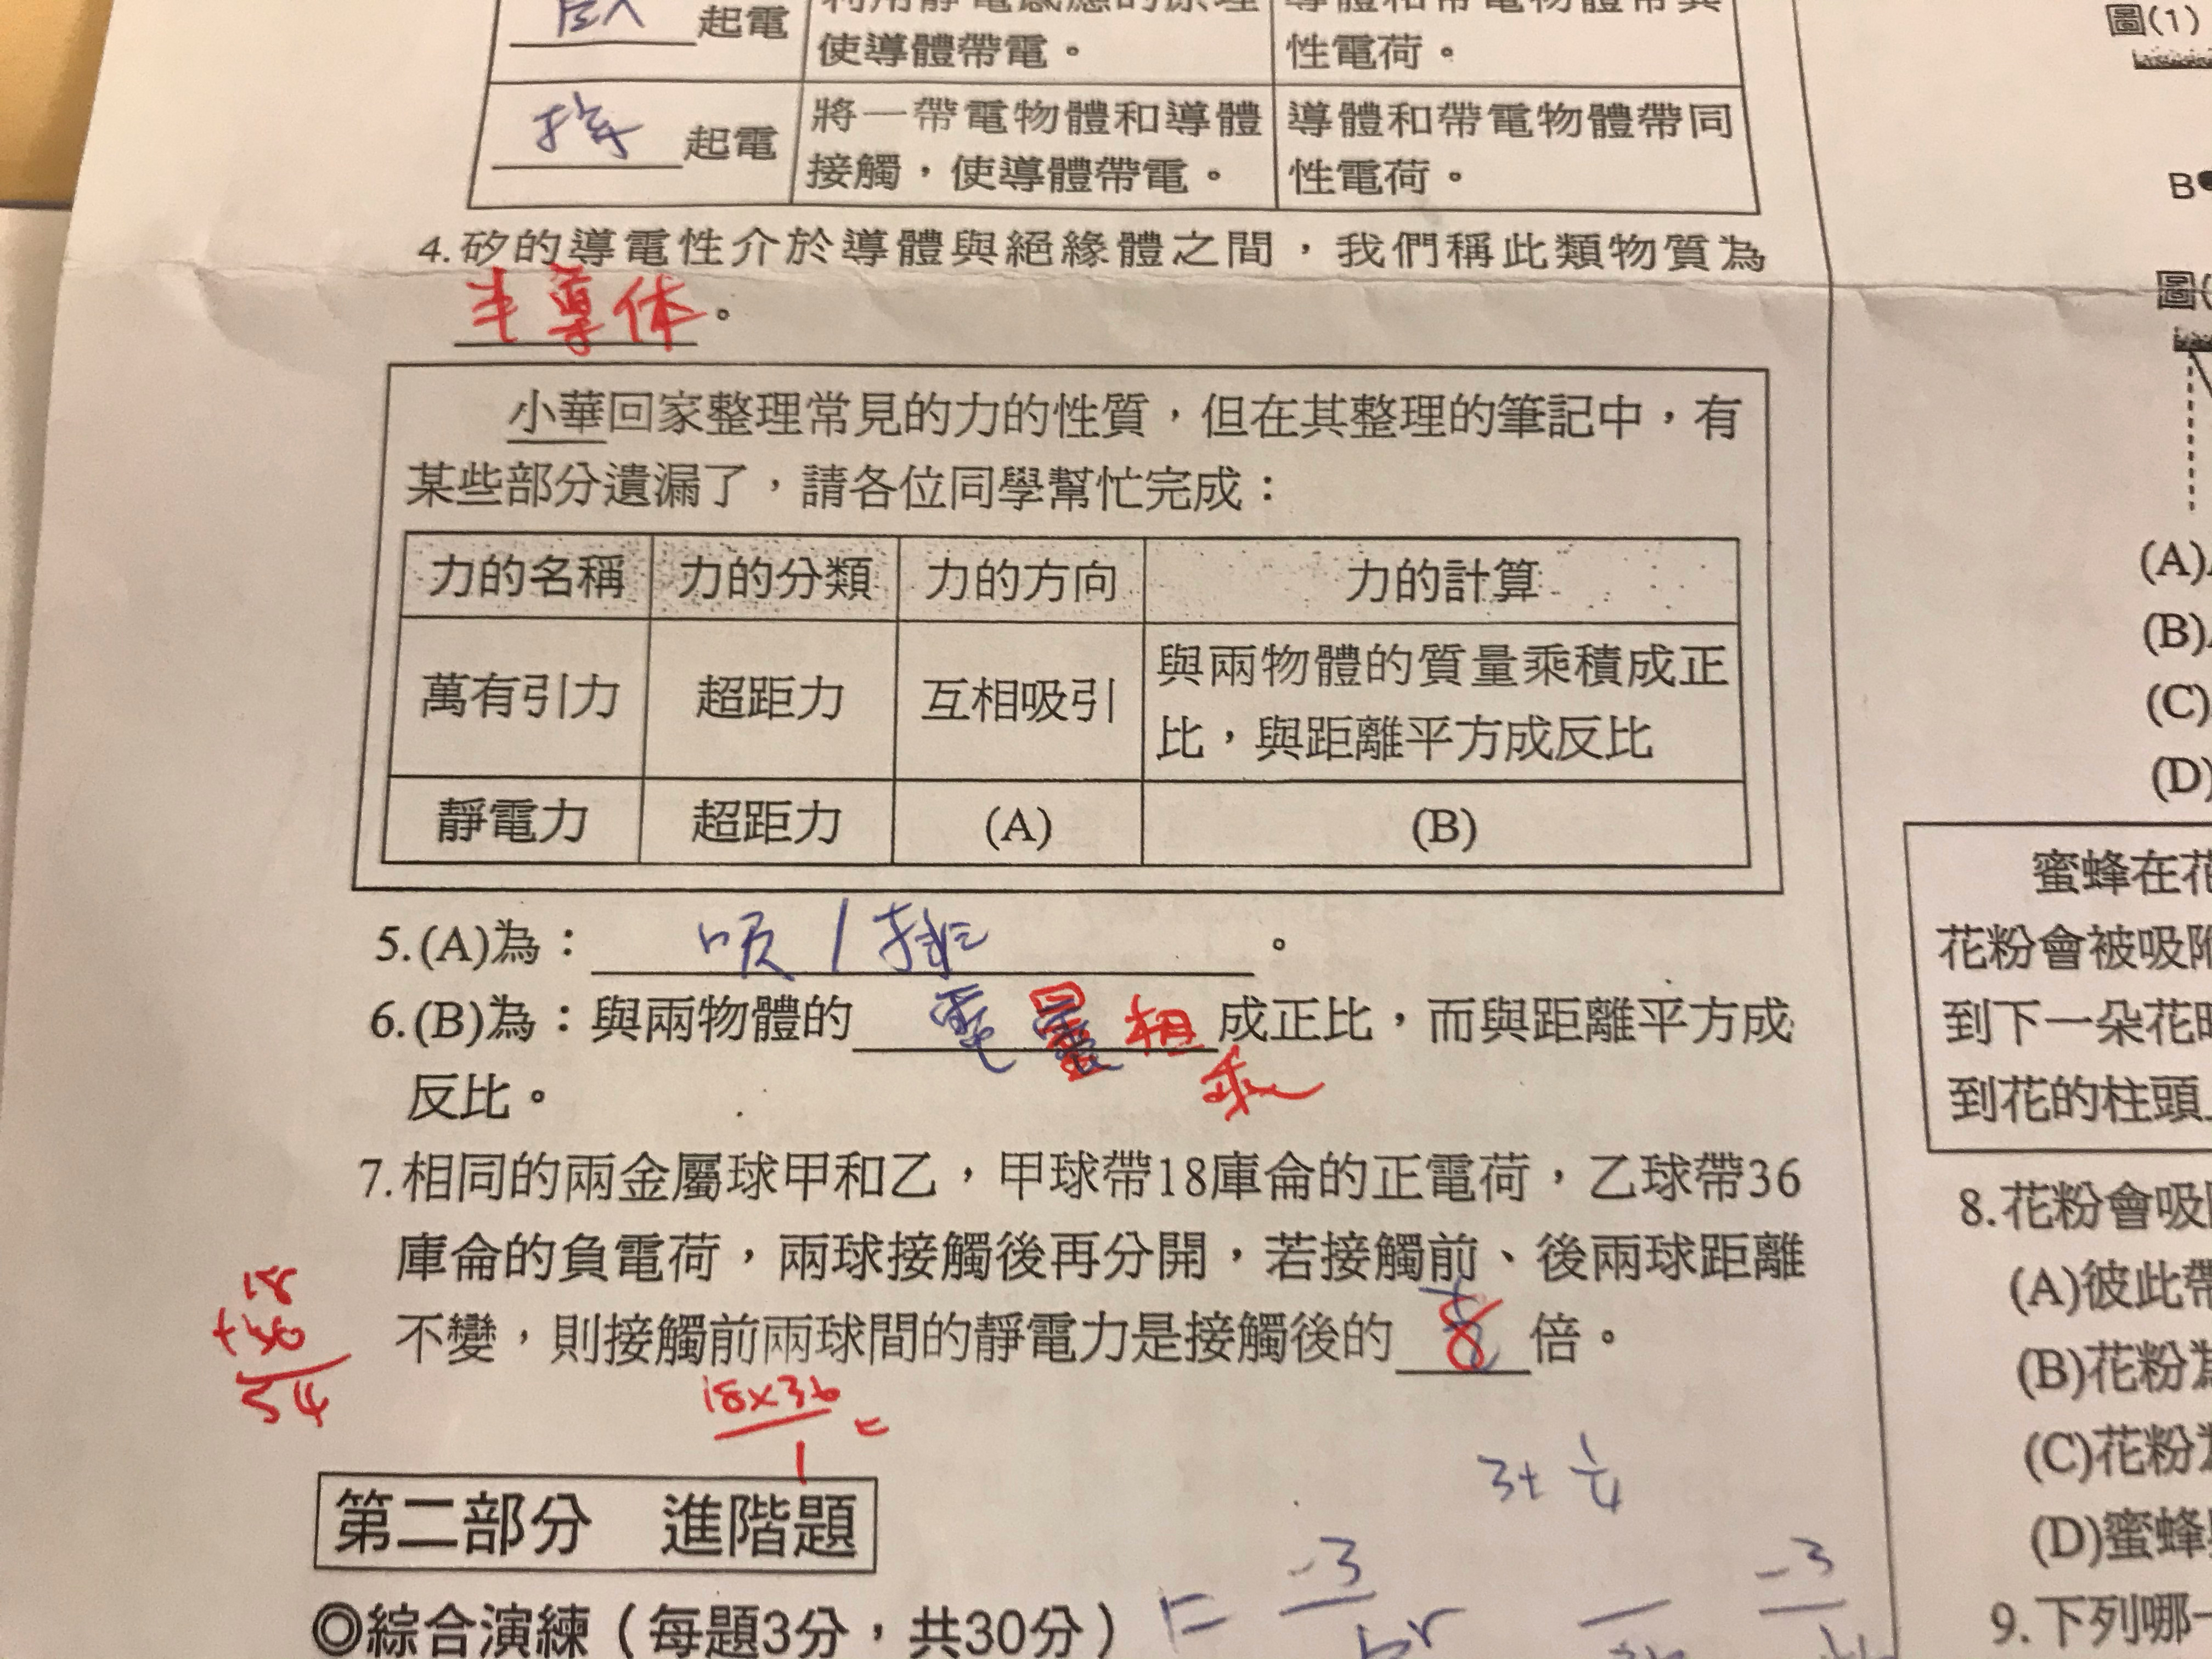 圖(1)
起電
使導體帶電。
性電荷。
起電
將一帶電物體和導體
接觸，使導體帶電。
導體和帶電物體帶同
性電荷。
4.矽的導電性介於導體與絕緣體之間，我們稱此類物質為
半導体。
小華回家整理常見的力的性質，但在其整理的筆記中，有
某些部分遺漏了，請各位同學幫忙完成：
力的名稱 力的分類 力的方向 力的計算
萬有引力 超距力 互相吸引 與兩物體的質量乘積成正
比，與距離平方成反比
靜電力 超距力 (A) (B)
5.(A)為：吸/排。
6.(B)為：與兩物體的電量相乘成正比，而與距離平方成
反比。
7.相同的兩金屬球甲和乙，甲球帶18庫侖的正電荷，乙球帶36
庫侖的負電荷，兩球接觸後再分開，若接觸前、後兩球距離
不變，則接觸前兩球間的靜電力是接觸後的8倍。
18
+36
54
18×36
=
1
3+ 1/4
-3
-3
第二部分 進階題
◎綜合演練（每題3分，共30分）
B
圖(
(A)
(B)
(C)
(D)
蜜蜂在花
花粉會被吸附
到下一朵花時
到花的柱頭
8.花粉會吸附
(A)彼此帶
(B)花粉為
(C)花粉
(D)蜜蜂
9.下列哪一